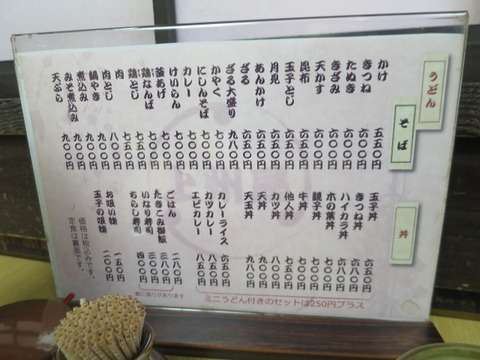 うどん
そば
かけ 五五〇円
きつね 六〇〇円
たぬき 六〇〇円
きざみ 六〇〇円
天かす 六〇〇円
昆布 六五〇円
玉子とじ 六五〇円
月見 六五〇円
あんかけ 六五〇円
ざる 六五〇円
ざる大盛り 九八〇円
かやく 七〇〇円
にしんそば 七〇〇円
カレー 七〇〇円
けいらん 七〇〇円
釜あげ 七〇〇円
鶏なんば 七〇〇円
鶏とじ 七五〇円
肉
肉とじ
鍋やき 九〇〇円
煮込み 九〇〇円
みそ煮込み 九〇〇円
天ぷら 九〇〇円
丼
玉子丼 六五〇円
きつね丼 六五〇円
ハイカラ丼 六八〇円
木の葉丼 六八〇円
親子丼 七〇〇円
牛丼 七五〇円
他人丼 七五〇円
カツ丼 八〇〇円
天丼 九八〇円
天玉丼 九八〇円
カレーライス 六五〇円
カツカレー 八五〇円
エビカレー 八五〇円
ごはん
たきこみ御飯
いなり寿司
ちらし寿司 四〇〇円
お吸い物 一五〇円
玉子の吸物 二〇〇円
価格は税込みです。
定食は裏面です。
ミニうどん付きのセットは250円プラス